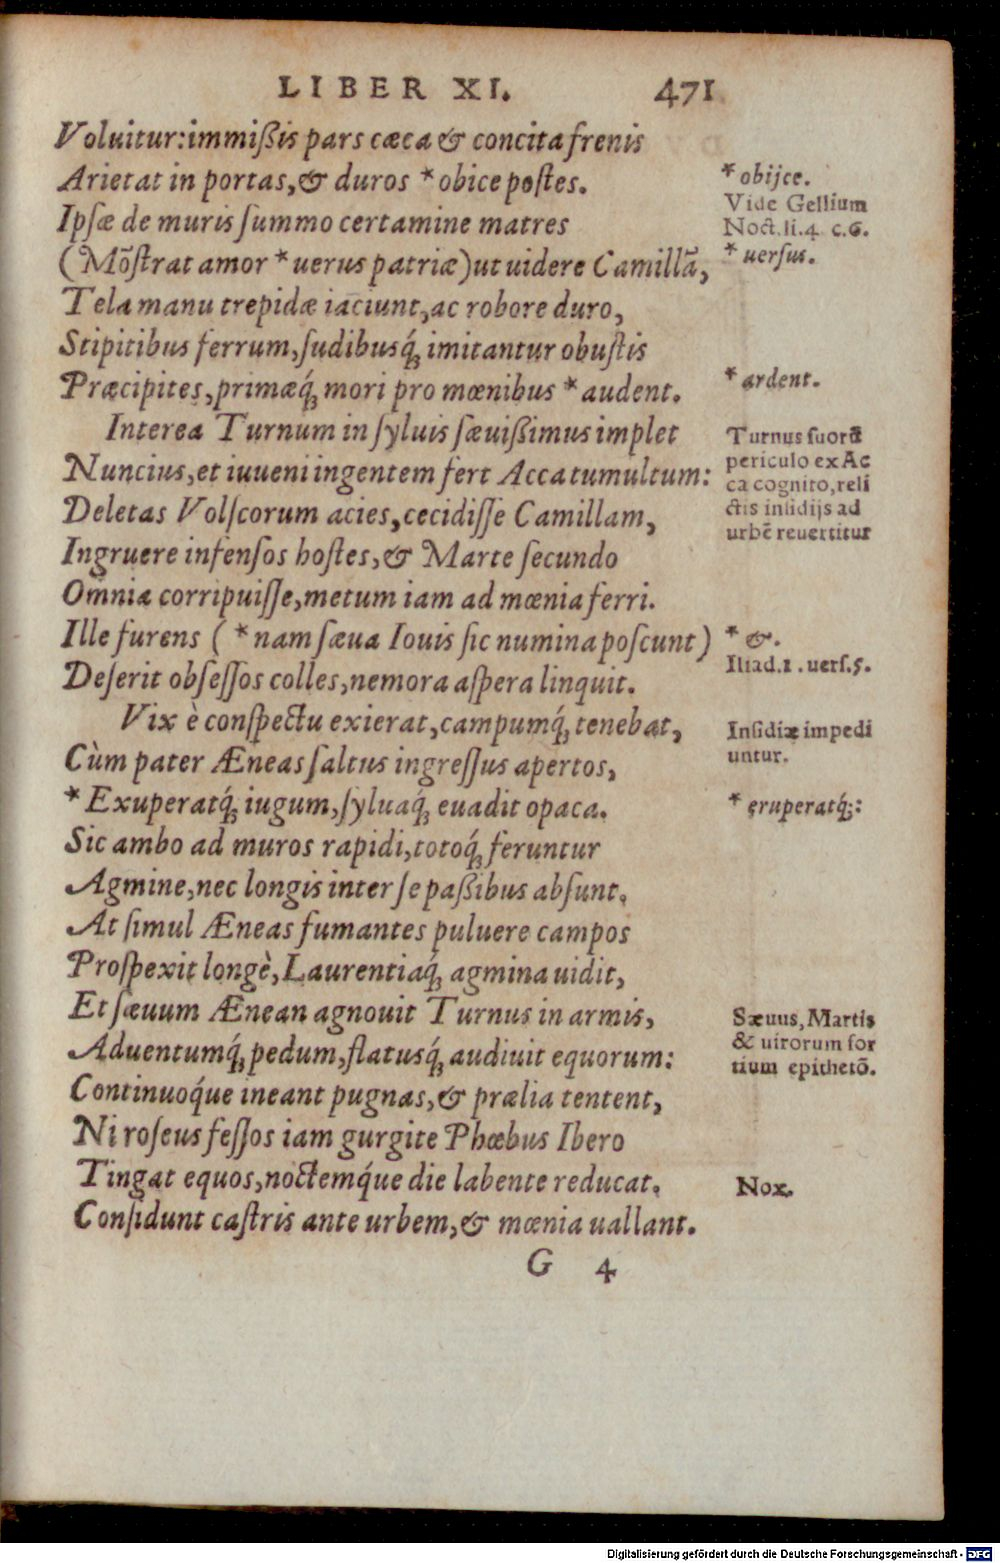 LIBER XI. 471
Voluitur: immißis pars cæca & concita frenis
Arietat in portas, & duros * obice postes.
* obijce.
Ipsæ de muris summo certamine matres
Vide Gellium
Noct. li. 4 c. 6.
(Mõstrat amor * uerus patriæ) ut uidere Camillã,
* uersus.
Tela manu trepidæ iaciunt, ac robore duro,
Stipitibus ferrum, sudibusq́; imitantur obustis
Præcipites, primæq́; mori pro mœnibus * audent.
* ardent.
Interea Turnum in syluis sæuißimus implet
Nuncius, et iuueni ingentem fert Acca tumultum:
Deletas Volscorum acies, cecidisse Camillam,
Ingruere infensos hostes, & Marte secundo
Omnia corripuisse, metum iam ad mœnia ferri.
Turnus suorũ
periculo ex Ac
ca cognito, reli
ctis insidijs ad
urbẽ reuertitur
Ille furens (* nam sæua Iouis sic numina poscunt)
* &.
Deserit obsessos colles, nemora aspera linquit.
Iliad. 1. uers. 5.
Vix è conspectu exierat, campumq́; tenebat,
Cùm pater Æneas saltus ingressus apertos,
Insidiæ impedi
untur.
* Exuperatq́; iugum, syluaq́; euadit opaca.
* eruperatq́;:
Sic ambo ad muros rapidi, totoq́; feruntur
Agmine, nec longis inter se paßibus absunt.
At simul Æneas fumantes puluere campos
Prospexit longè, Laurentiaq́; agmina uidit,
Et sæuum Ænean agnouit Turnus in armis,
Aduentumq́; pedum, flatusq́; audiuit equorum:
Sæuus, Martis
& uirorum for
tium epithetõ.
Continuoq́ue ineant pugnas, & prælia tentent,
Ni roseus fessos iam gurgite Phœbus Ibero
Tingat equos, noctemq́ue die labente reducat.
Nox.
Considunt castris ante urbem, & mœnia uallant.
G 4
Digitalisierung gefördert durch die Deutsche Forschungsgemeinschaft - DFG